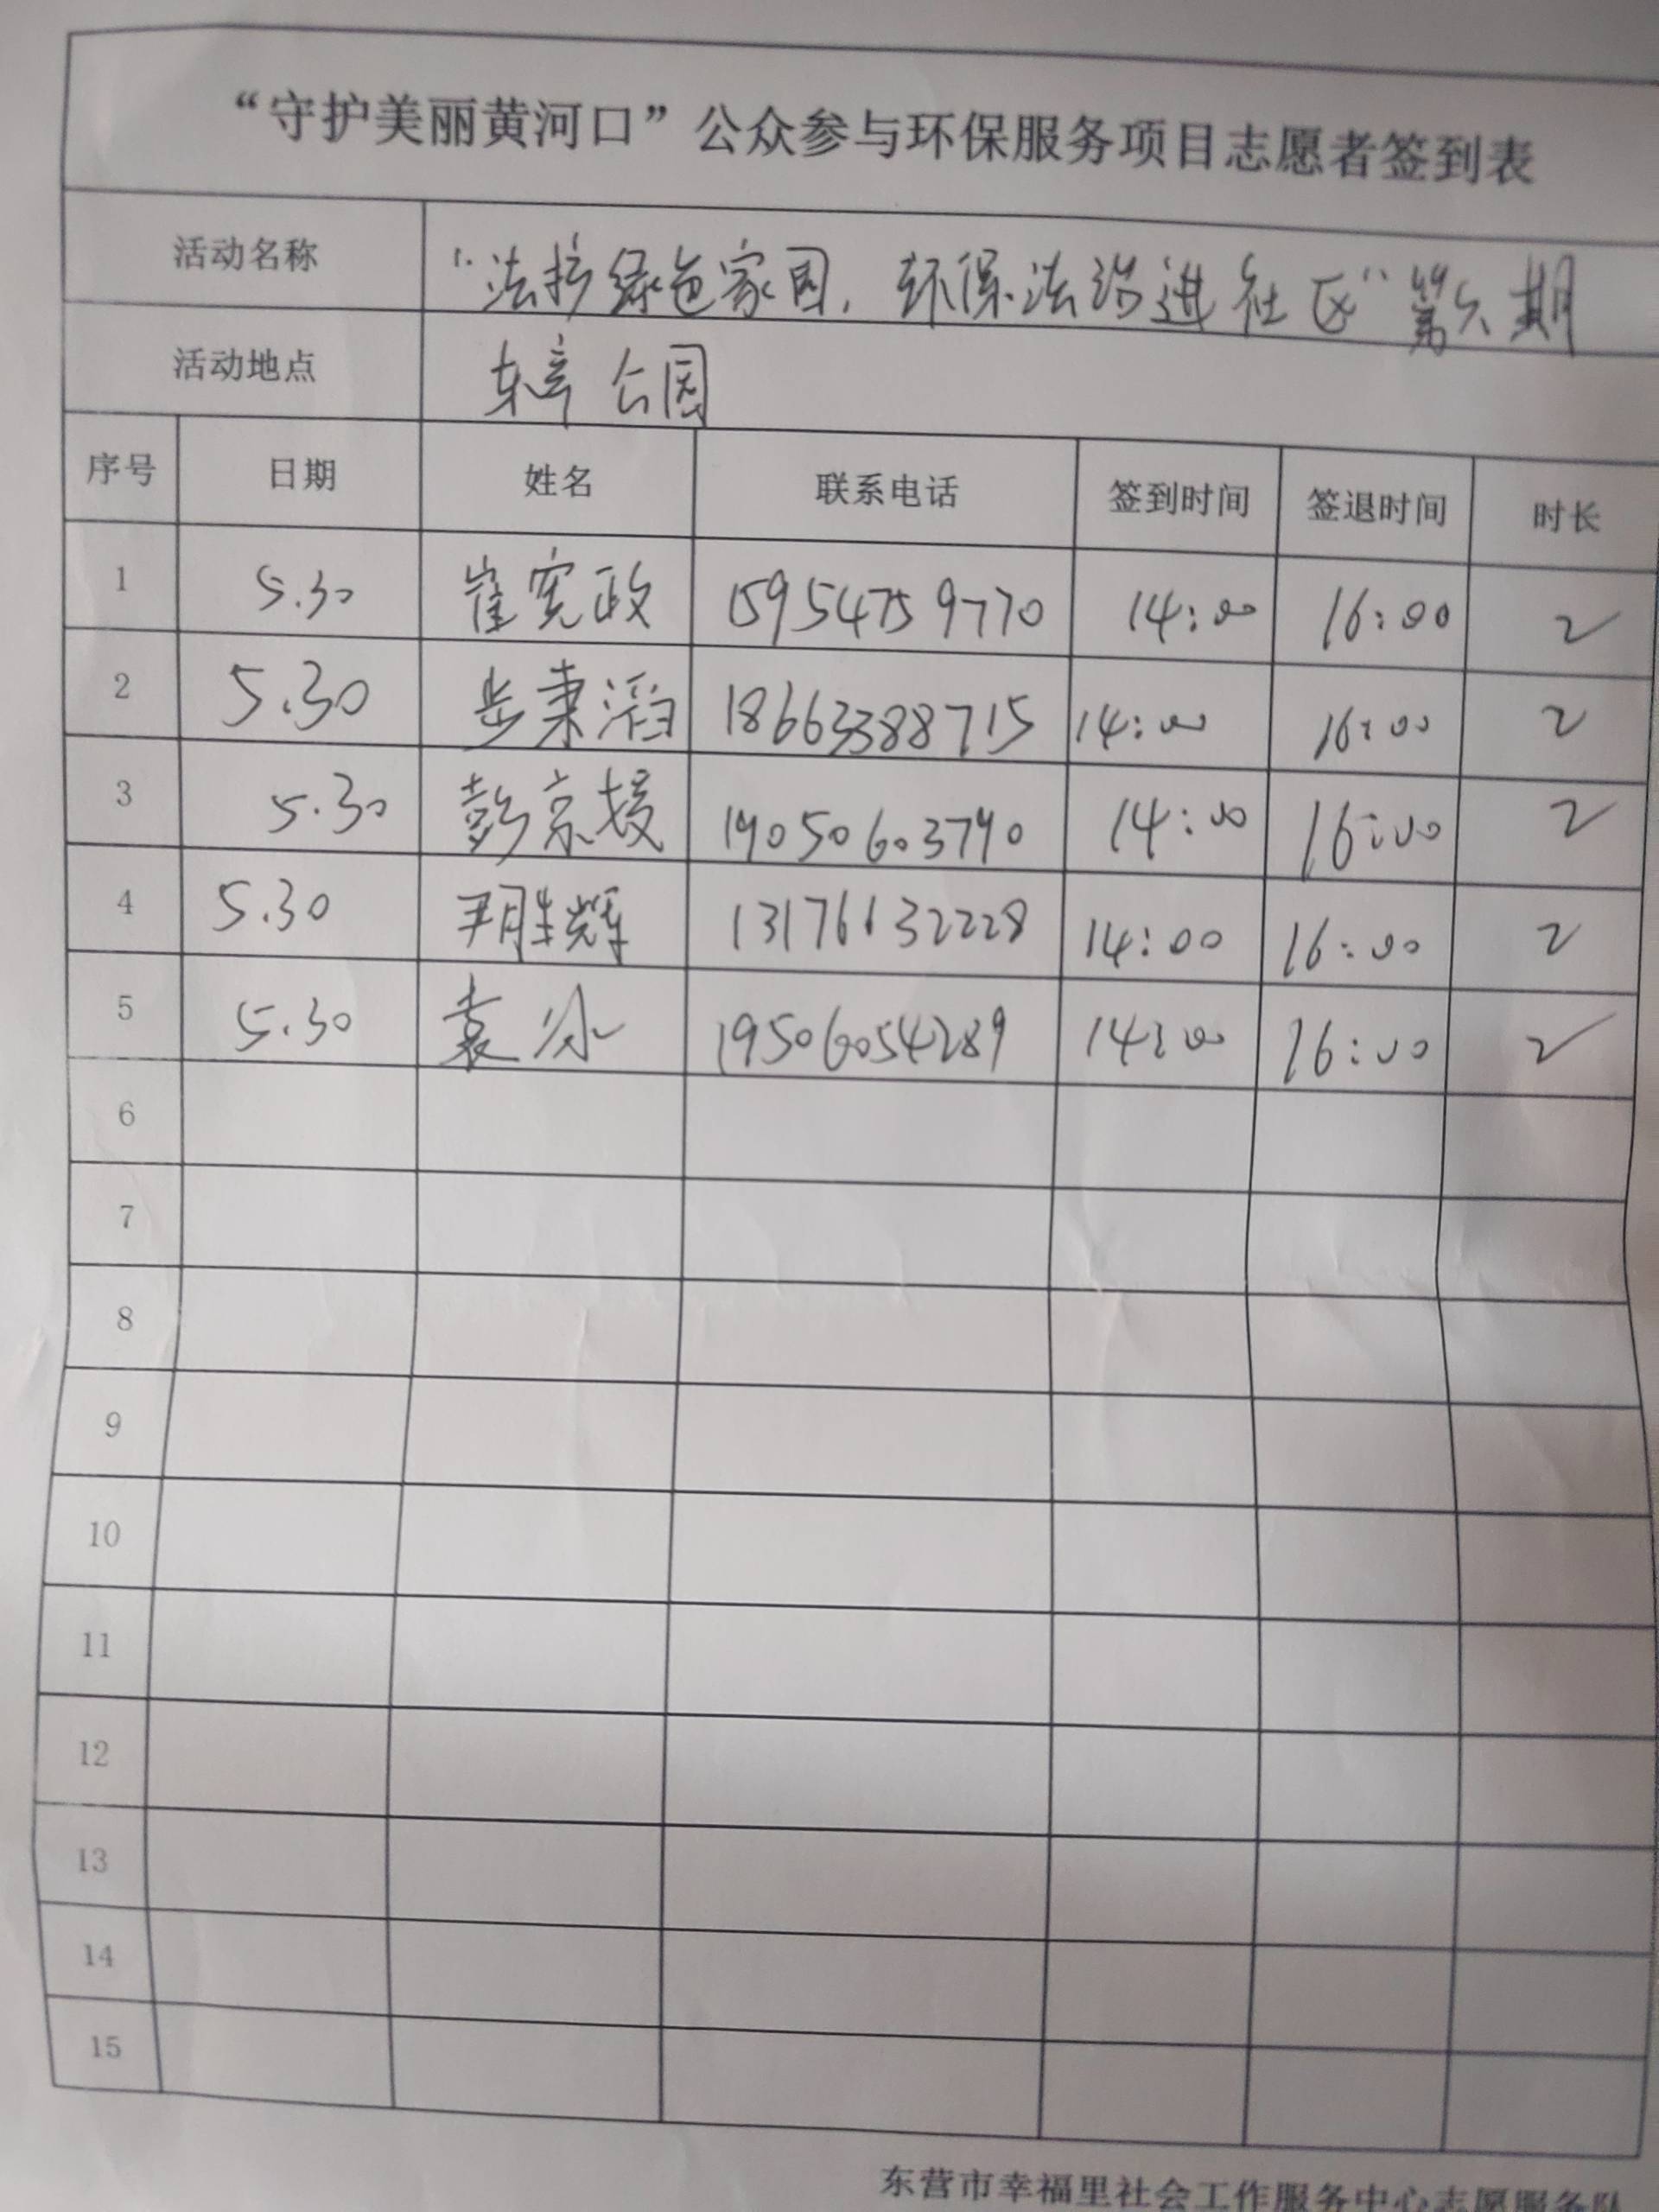 “守护美丽黄河口”公众参与环保服务项目志愿者签到表
活动名称 “法护绿色家园,环保法治进社区”第六期
活动地点 东辛公园
序号 日期 姓名 联系电话 签到时间 签退时间 时长
1 5.30 崔宪政 15954759770 14:00 16:00 2
2 5.30 步秉滔 18663388715 14:00 16:00 2
3 5.30 彭京媛 14:00 16:00 2
4 5.30 尹胜辉 13176632228 14:00 16:00 2
5 5.30 袁 19506054289 14:00 16:00 2
6
7
8
9
10
11
12
13
14
15
东营市幸福里社会工作服务中心志愿服务队